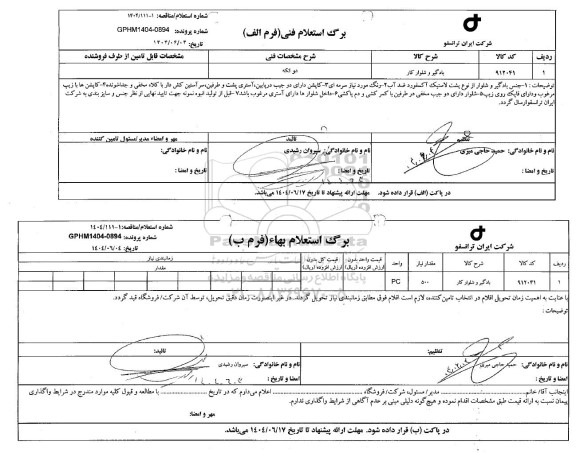 برگ استعلام فنی(فرم الف)
شماره استعلام/مناقصه: ۱۱۱-۱۴۰۴/۱
شماره پرونده: GPHM1404-0894
تاریخ: ۱۴۰۴/۰۶/۰۴
شرکت ایران ترانسفو
ردیف کد کالا شرح کالا شرح مشخصات فنی مشخصات قابل تامین از طرف فروشنده
۱ ۹۱۲۰۴۱ بادگیر و شلوار کار دو تکه
توضیحات : ۱-جنس بادگیر و شلوار از نوع پشت لاستیک آکسفورد ضد آب۲-رنگ مورد نیاز سرمه ای۳-کاپشن دارای دو جیب درپایین،آستری پشت و طرفین،سر آستین کش دار با کلاه مخفی و جداشونده۴-کاپشن ها با زیپ
مرغوب ودارای فلپک روی زیپ۵-شلوار دارای دو جیب مخفی در طرفین با کمر کشی و دم پاکشی۶-داخل شلوار ها دارای آستری مرغوب باشد۷-قبل از تولید انبوه نمونه جهت تایید نهایی از نظر جنس و سایز بندی به شرکت
ایران ترانسفوارسال گردد.
تنظیم
تائید
مهر و امضاء مدیر/مسئول تامین کننده
نام و نام خانوادگی: حمید حاجی میری
نام و نام خانوادگی: سیروان رشیدی
نام و نام خانوادگی:
تاریخ و امضا :
تاریخ و امضا :
تاریخ و امضا :
در پاکت (الف) قرار داده شود. مهلت ارائه پیشنهاد تا تاریخ ۱۴۰۴/۰۶/۱۷ می‌باشد.
برگ استعلام بهاء(فرم ب)
شماره استعلام/مناقصه: ۱۱۱-۱۴۰۴/۱
شماره پرونده: GPHM1404-0894
تاریخ: ۱۴۰۴/۰۶/۰۴
شرکت ایران ترانسفو
ردیف کد کالا شرح کالا مقدار نیاز واحد قیمت واحد بدون ارزش افزوده (ریال) قیمت کل بدون ارزش افزوده (ریال) زمانبندی نیاز
مقدار
۱ ۹۱۲۰۴۱ بادگیر و شلوار کار ۵۰۰ PC
با عنایت به اهمیت زمان تحویل اقلام در انتخاب تامین کننده، لازم است اقلام فوق مطابق زمانبندی نیاز تحویل گردند. در غیر اینصورت زمان دقیق تحویل، توسط آن شرکت/ فروشگاه قید گردد.
توضیحات :
تنظیم:
تائید:
نام و نام خانوادگی: حمید حاجی میری
نام و نام خانوادگی: سیروان رشیدی
امضا و تاریخ :
امضا و تاریخ :
اینجانب آقا/ خانم مدیر/ مسئول، شرکت/ فروشگاه اعلام می‌داوم که در تاریخ با مطالعه و قبول کلیه موارد مندرج در شرایط واگذاری
پیمان نسبت به ارائه قیمت طبق مشخصات اقدام نموده و هیچ‌گونه دلیلی مبنی بر عدم آگاهی از شرایط واگذاری ندارم.
مهر و امضا:
در پاکت (ب) قرار داده شود. مهلت ارائه پیشنهاد تا تاریخ ۱۴۰۴/۰۶/۱۷ می‌باشد.